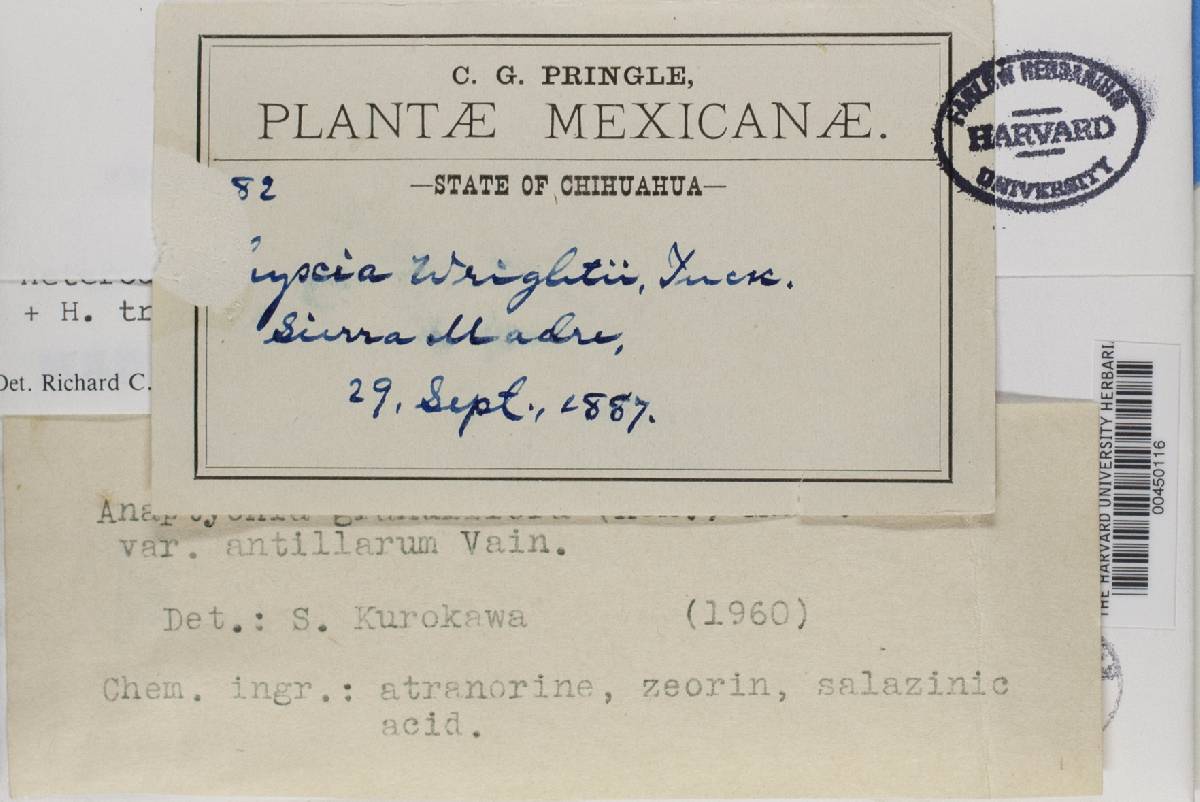 C. G. PRINGLE,
PLANTÆ MEXICANÆ.
—STATE OF CHIHUAHUA—
82
Wrightii, Tuck.
Sierra Madre,
29, Sept., 1887.
FARLOW HERBARIUM
HARVARD
UNIVERSITY
+ H. tr
Det. Richard C.
THE HARVARD UNIVERSITY HERBARI
00450116
var. antillarum Vain.
Det.: S. Kurokawa (1960)
Chem. ingr.: atranorine, zeorin, salazinic
acid.